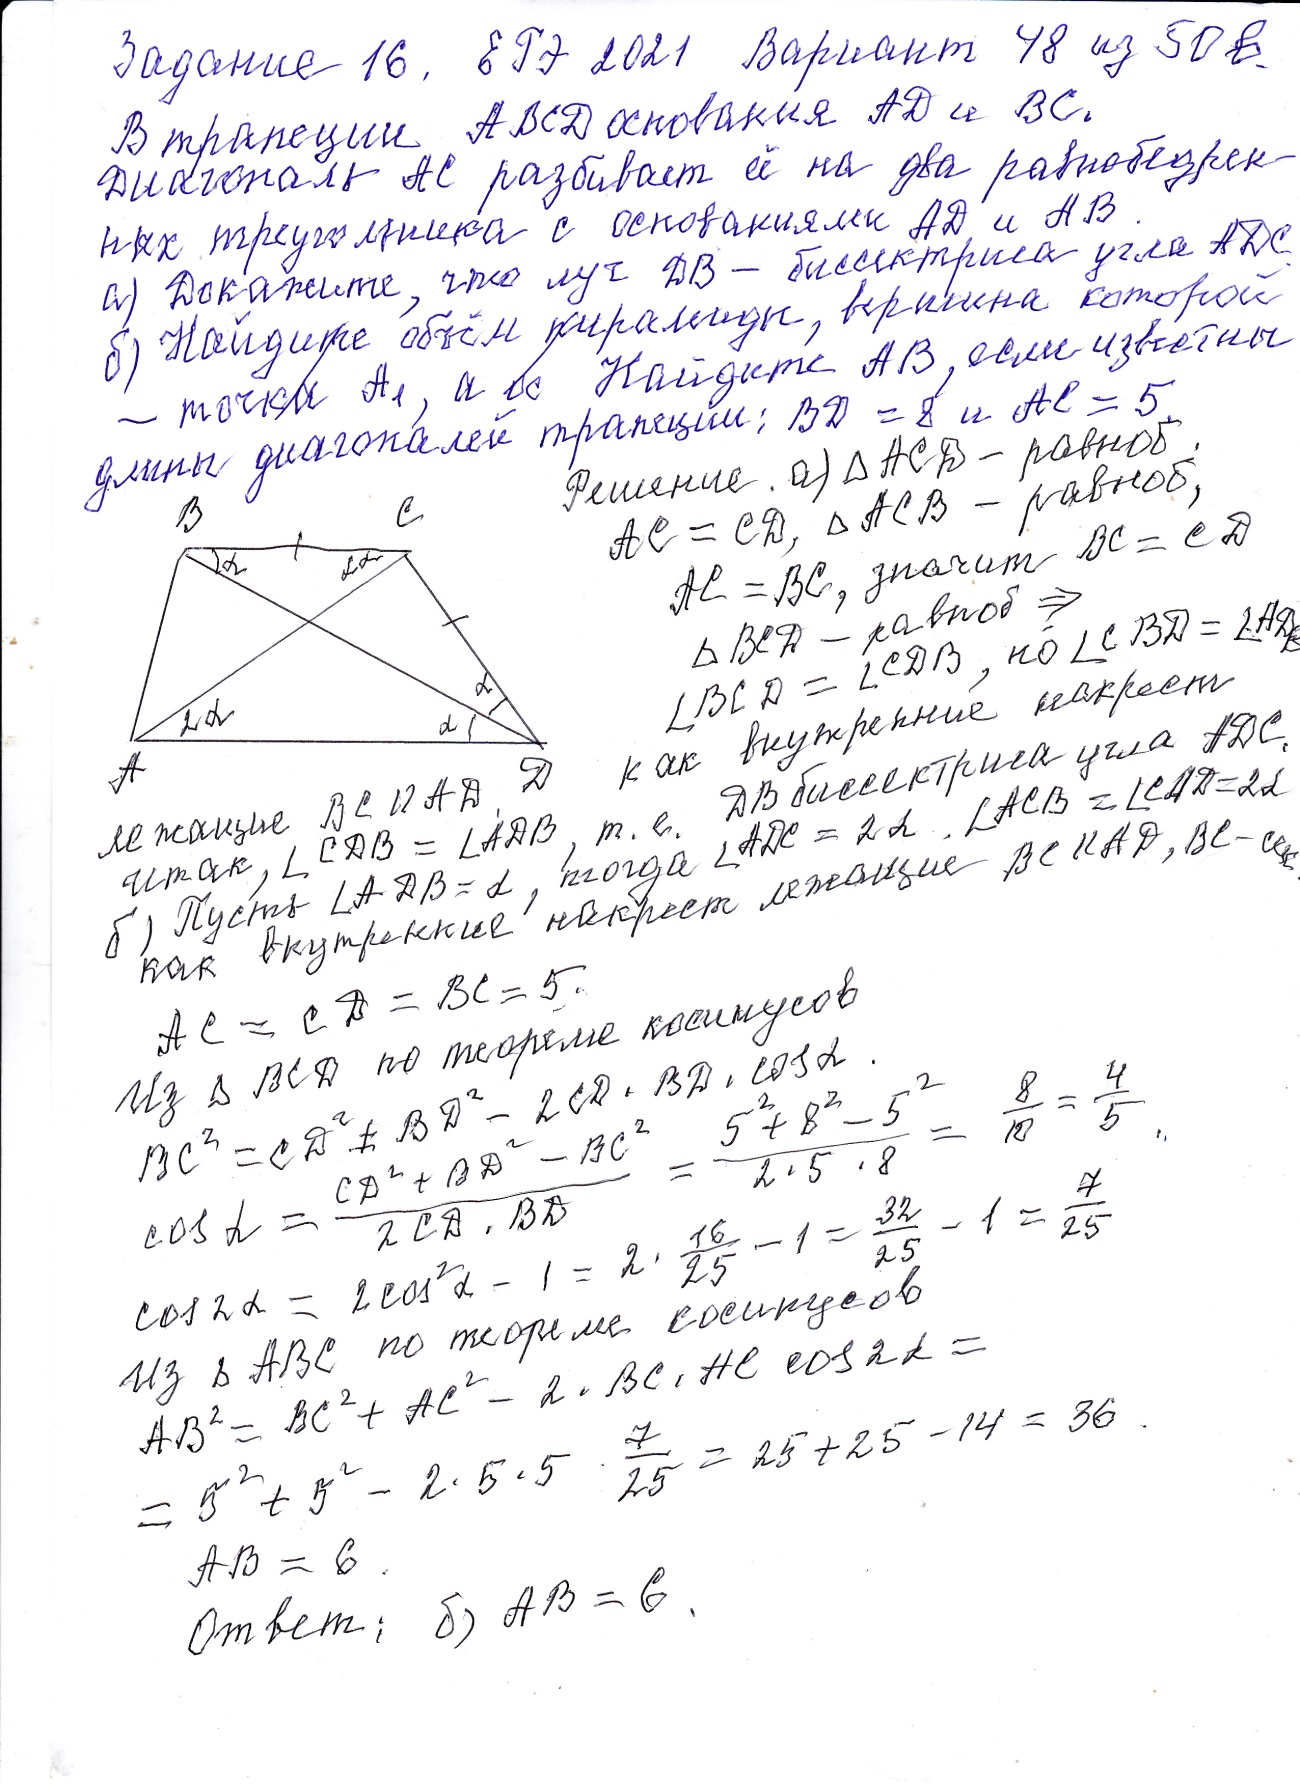 Задание 16. ЕГЭ 2021 Вариант 48 из 50 в.
В трапеции ABCD основания AD и BC.
Диагональ AC разбивает её на два равнобедрен-
ных треугольника с основаниями AD и AB.
а) Докажите, что луч DB – биссектриса угла ADC.
б) Найдите объём пирамиды, вершина которой
– точка A₁, а ос Найдите AB, если известны
длины диагоналей трапеции: BD = 8 и AC = 5.
Решение. а) △ACD – равноб.
AC = CD, △ACB – равноб,
AC = BC, значит BC = CD
△BCD – равноб ⇒
∠BCD = ∠CDB, но ∠CBD = ∠ADB
как внутренние накрест
лежащие BC ∥ AD.
итак, ∠CDB = ∠ADB, т.е. DB биссектриса угла ADC.
б) Пусть ∠ADB = α, тогда ∠ADC = 2α. ∠ACB = ∠CAD = 2α
как внутренние накрест лежащие BC ∥ AD, BC – сек.
B C
α 2α
α
2α α
A D
AC = CD = BC = 5.
Из △ BCD по теореме косинусов
BC² = CD² + BD² – 2CD · BD · cos α.
cos α = (CD² + BD² – BC²)/(2CD · BD) = (5² + 8² – 5²)/(2 · 5 · 8) = 8/10 = 4/5.
cos 2α = 2cos²α – 1 = 2 · 16/25 – 1 = 32/25 – 1 = 7/25
Из △ ABC по теореме косинусов
AB² = BC² + AC² – 2 · BC · AC cos 2α =
= 5² + 5² – 2 · 5 · 5 · 7/25 = 25 + 25 – 14 = 36.
AB = 6.
Ответ: б) AB = 6.